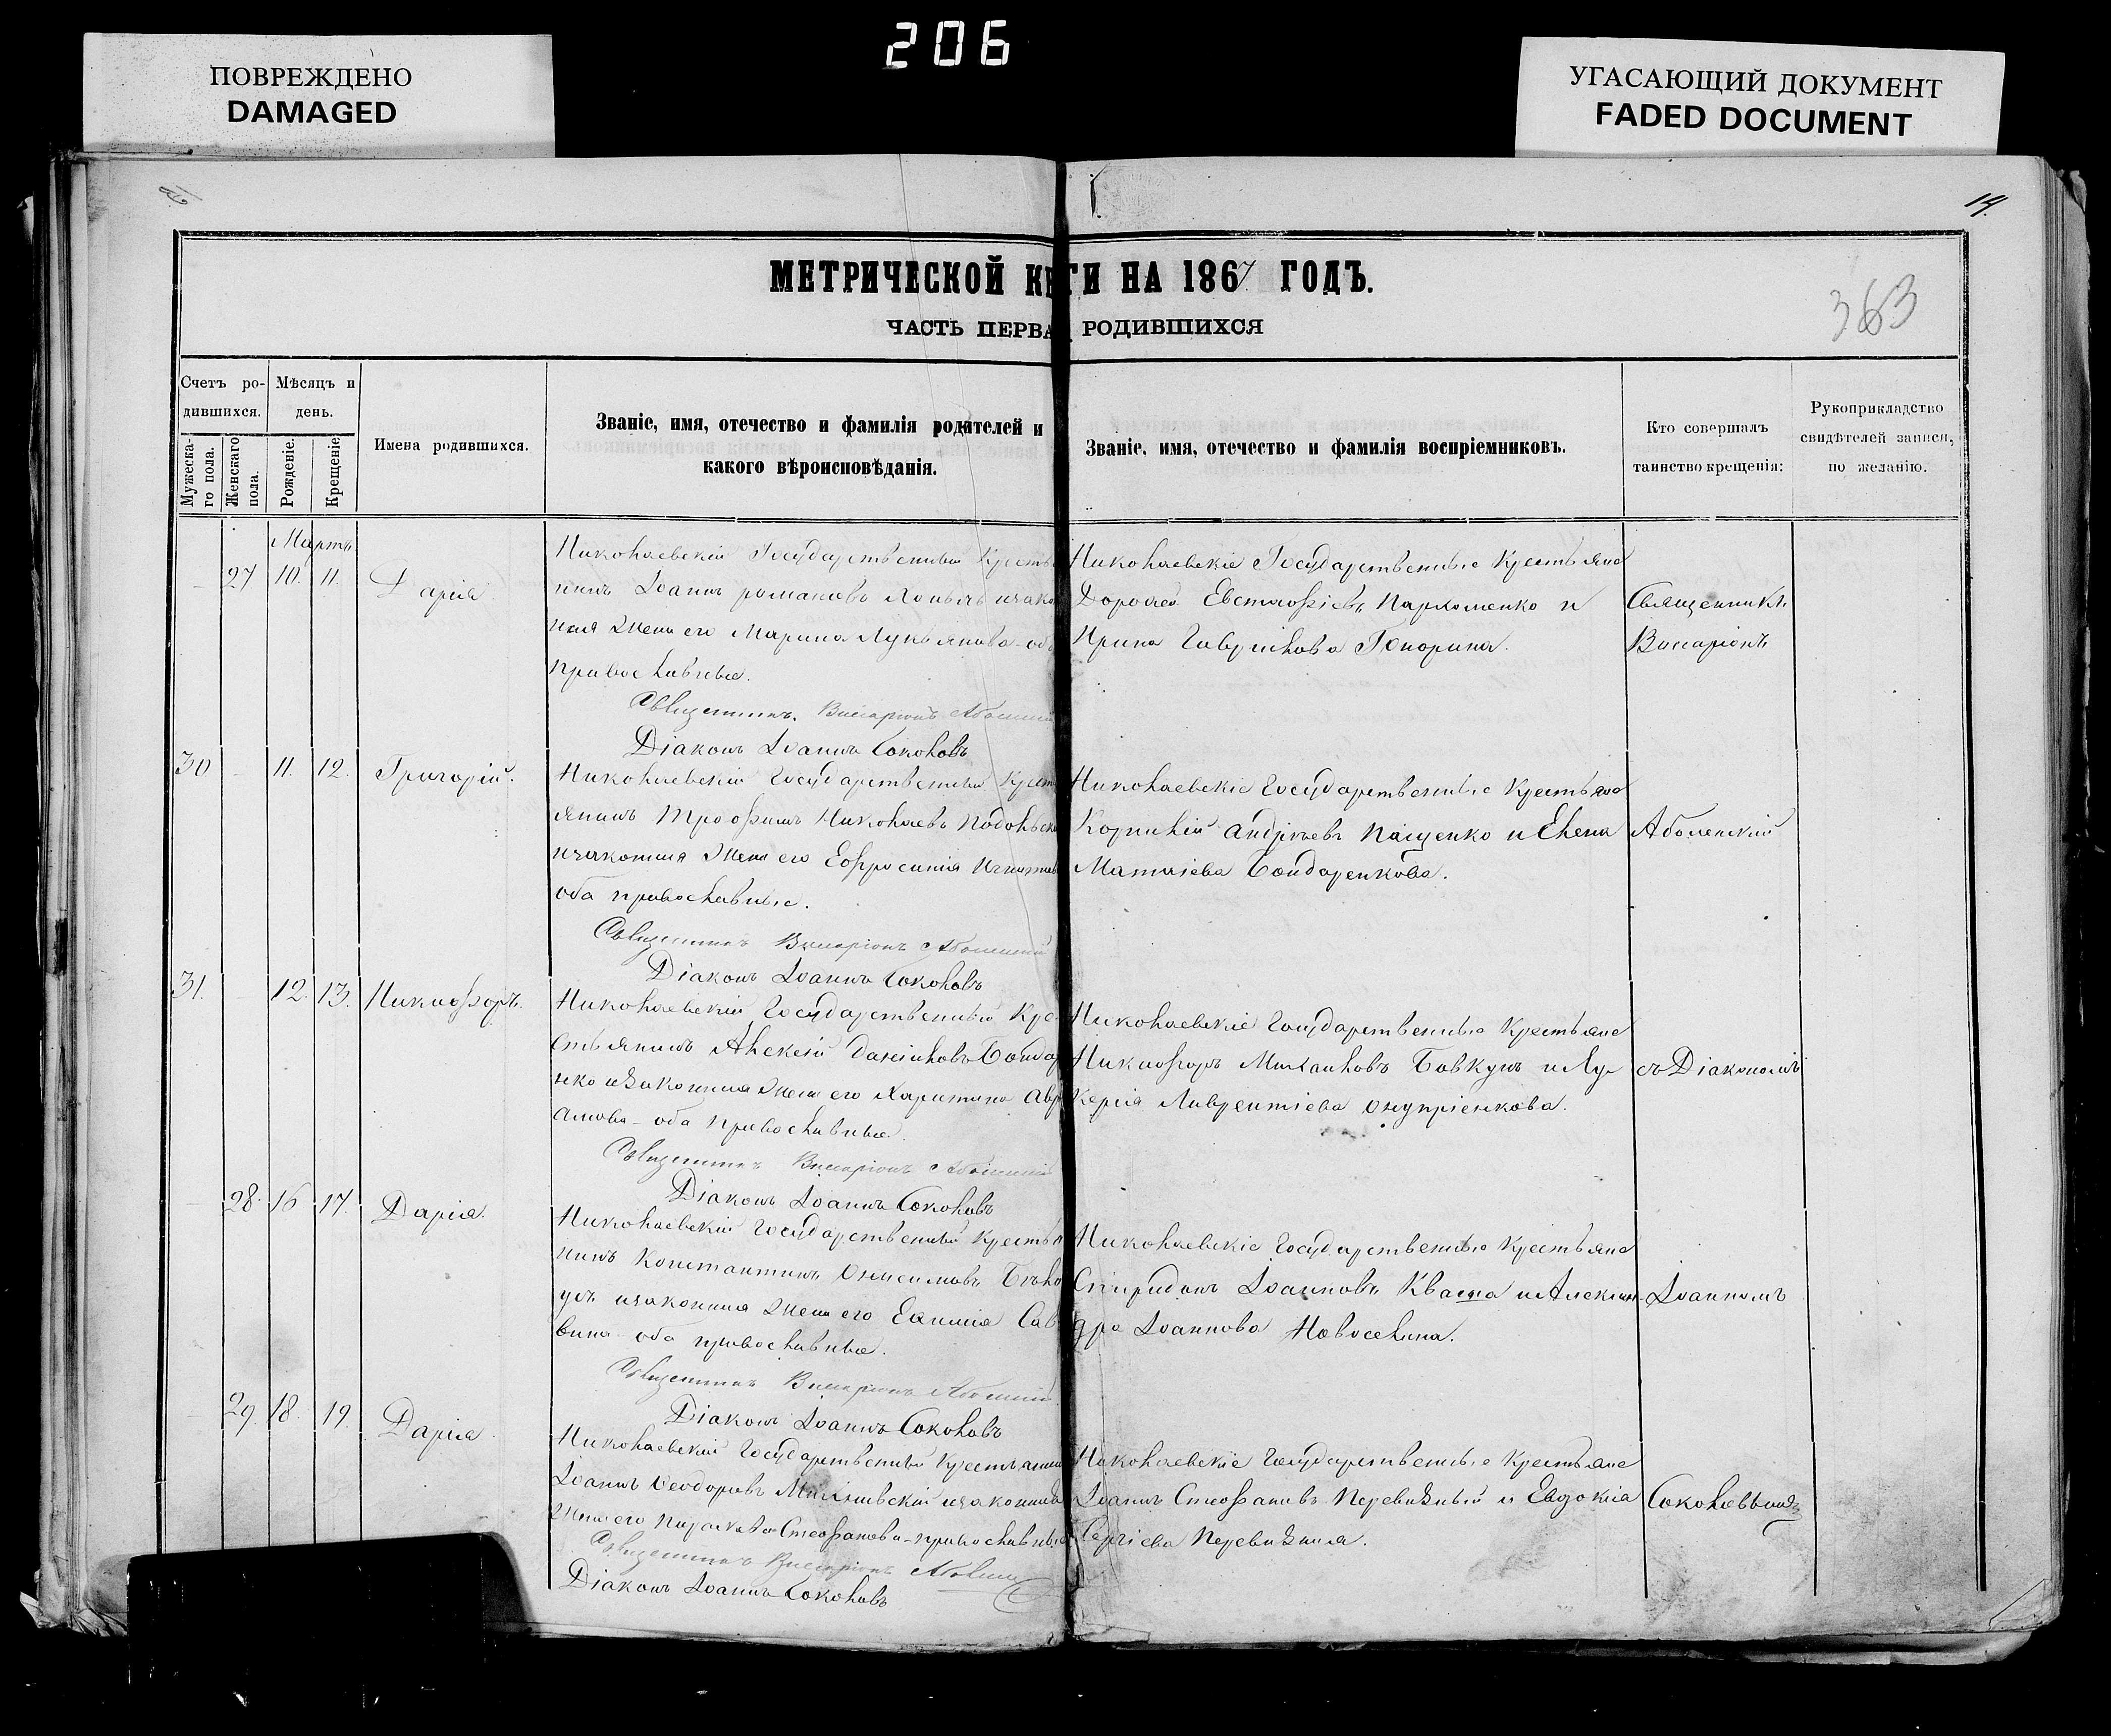 206
ПОВРЕЖДЕНО
DAMAGED
УГАСАЮЩИЙ ДОКУМЕНТ
FADED DOCUMENT
14.
МЕТРИЧЕСКОЙ КН ГИ НА 1867 ГОДЪ.
ЧАСТЬ ПЕРВА РОДИВШИХСЯ
363
Счетъ ро-
дившихся.
Мѣсяцъ и
день.
Мужеска-
го пола.
Женскаго
пола.
Рожденіе.
Крещеніе
Имена родившихся.
Званіе, имя, отечество и фамилія родителей и
какого вѣроисповѣданія.
Званіе, имя, отечество и фамилія воспріемниковъ.
Кто совершалъ
таинство крещенія:
Рукоприкладство
свидѣтелей записи,
по желанію.
Марта
27 10. 11. Дарія
Николаевскій Государственный Кресть
нинъ Іоаннъ романовъ изако
ная жена его Марина Лукьянова - об
православные.
Священникъ Висаріонъ Аболенскій
Діаконъ Іоаннъ Соколовъ
Николаевскіе Государственные Крестьяне
Дорофей Евстафіевъ Пархоменко и
Ирина Гавріилова
Священникъ
Висаріонъ
30 11. 12. Григорій.
Николаевскій Государственный Крест
янинъ Трофимъ Николаевъ Подольск
изаконная жена его Ефросинія Игнатов
оба православные.
Священникъ Висаріонъ Аболенскій
Діаконъ Іоаннъ Соколовъ
Николаевскіе Государственные Крестьяне
Корнилій Андріевъ Пащенко и Елена
Матѳіева Бондаренкова.
Аболенскій
31. 12. 13. Никифоръ.
Николаевскій Государственный Кре-
стьянинъ Алексій Даніиловъ Бондар
нко изаконная жена его Харитина Авр
амова - оба православные.
Священникъ Висаріонъ Аболенскій
Діаконъ Іоаннъ Соколовъ
Николаевскіе Государственные Крестьяне
Никифоръ Михаиловъ Бовкунъ и Лу-
керія Лаврентіева Онупріенкова.
съ Діакономъ
28. 16 17. Дарія.
Николаевскій Государственный Крестья
нинъ Константинъ Онисимовъ
изаконная жена его Сав
вина оба православные.
Священникъ Висаріонъ Аболенскій
Діаконъ Іоаннъ Соколовъ
Николаевскіе Государственные Крестьяне
Спиридонъ Іоанновъ Кваша и Алексан-
дра Іоаннова Новоселина.
Іоанномъ
29. 18. 19. Дарія
Николаевскій Государственный Крестьянин
Іоаннъ Ѳеодоровъ изаконная
жена его Параскева Стефанова - православные
Священникъ Висаріонъ Аболенскій
Діаконъ Іоаннъ Соколовъ
Николаевскіе Государственные Крестьяне
Іоаннъ Стефановъ Перевизный и Евдокія
Сергіева Перевизная.
Соколовымъ